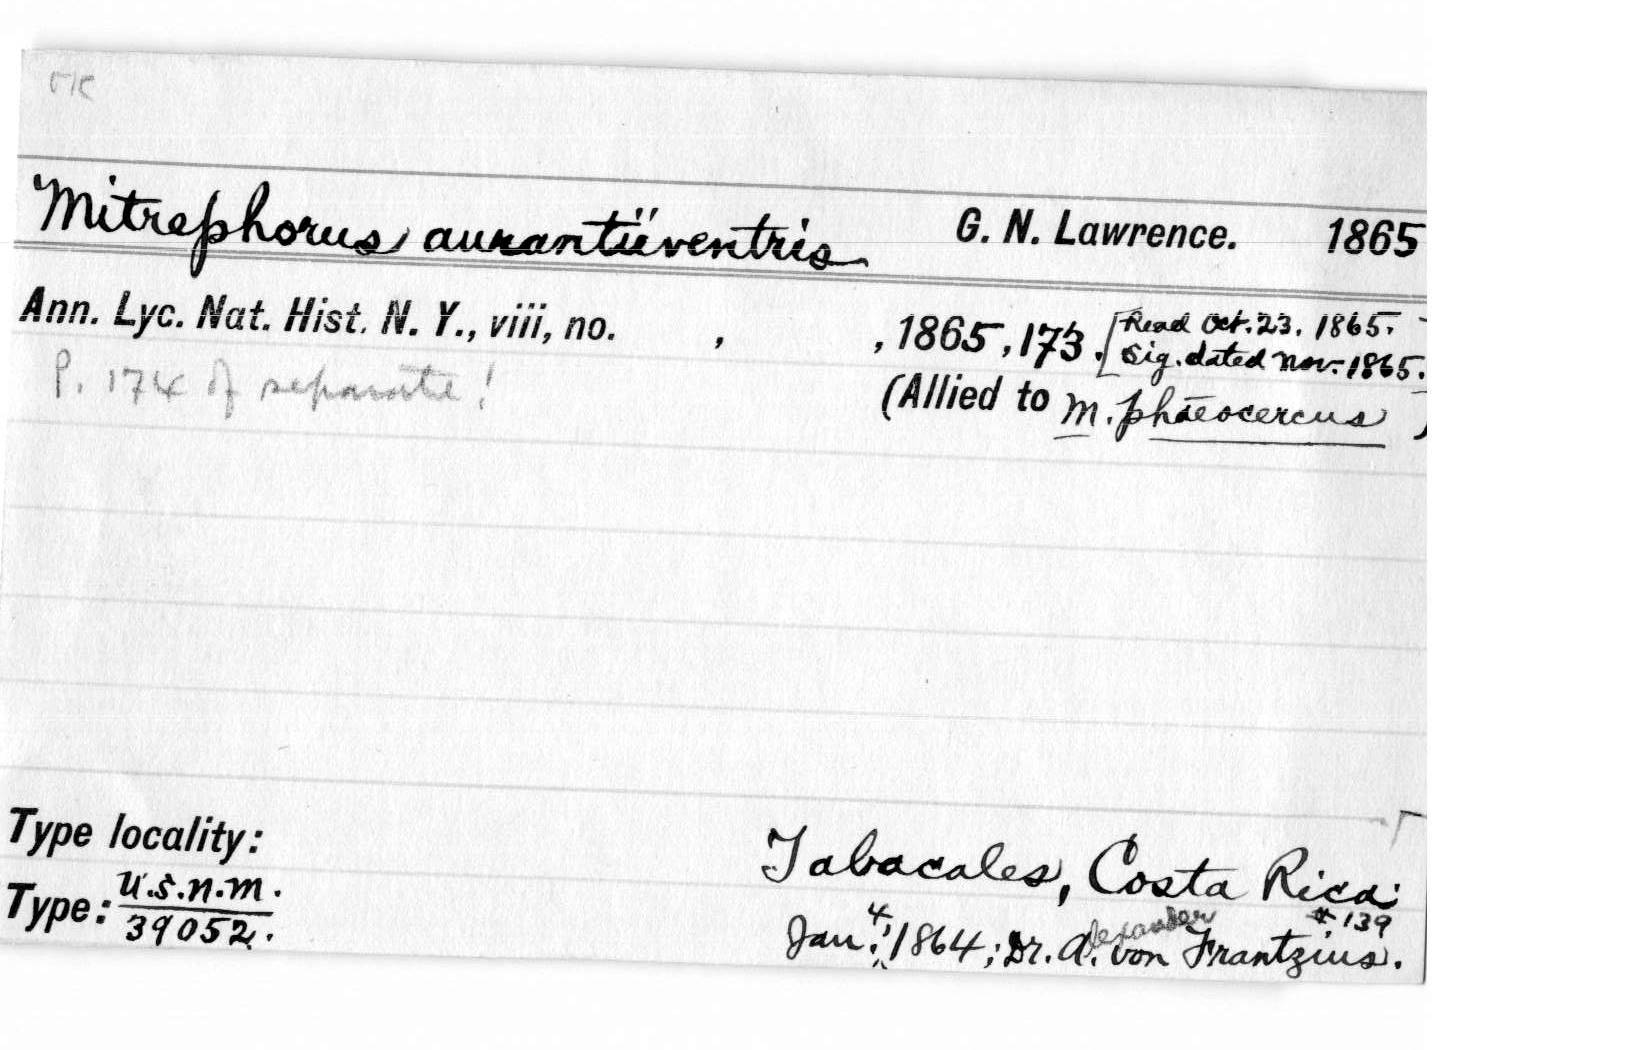 OK
Mitrephorus aurantiiventris G. N. Lawrence. 1865
Ann. Lyc. Nat. Hist. N. Y., viii, no. , , 1865, 173. [Read Oct. 23, 1865.
Sig. dated Nov. 1865.
P. 174 of separate!
(Allied to M. phaeocercus )
Type locality: Tabacales, Costa Rica;
Type: U.S.N.M. 39052. #139
Jan. 4, 1864; Dr. Alexander von Frantzius.